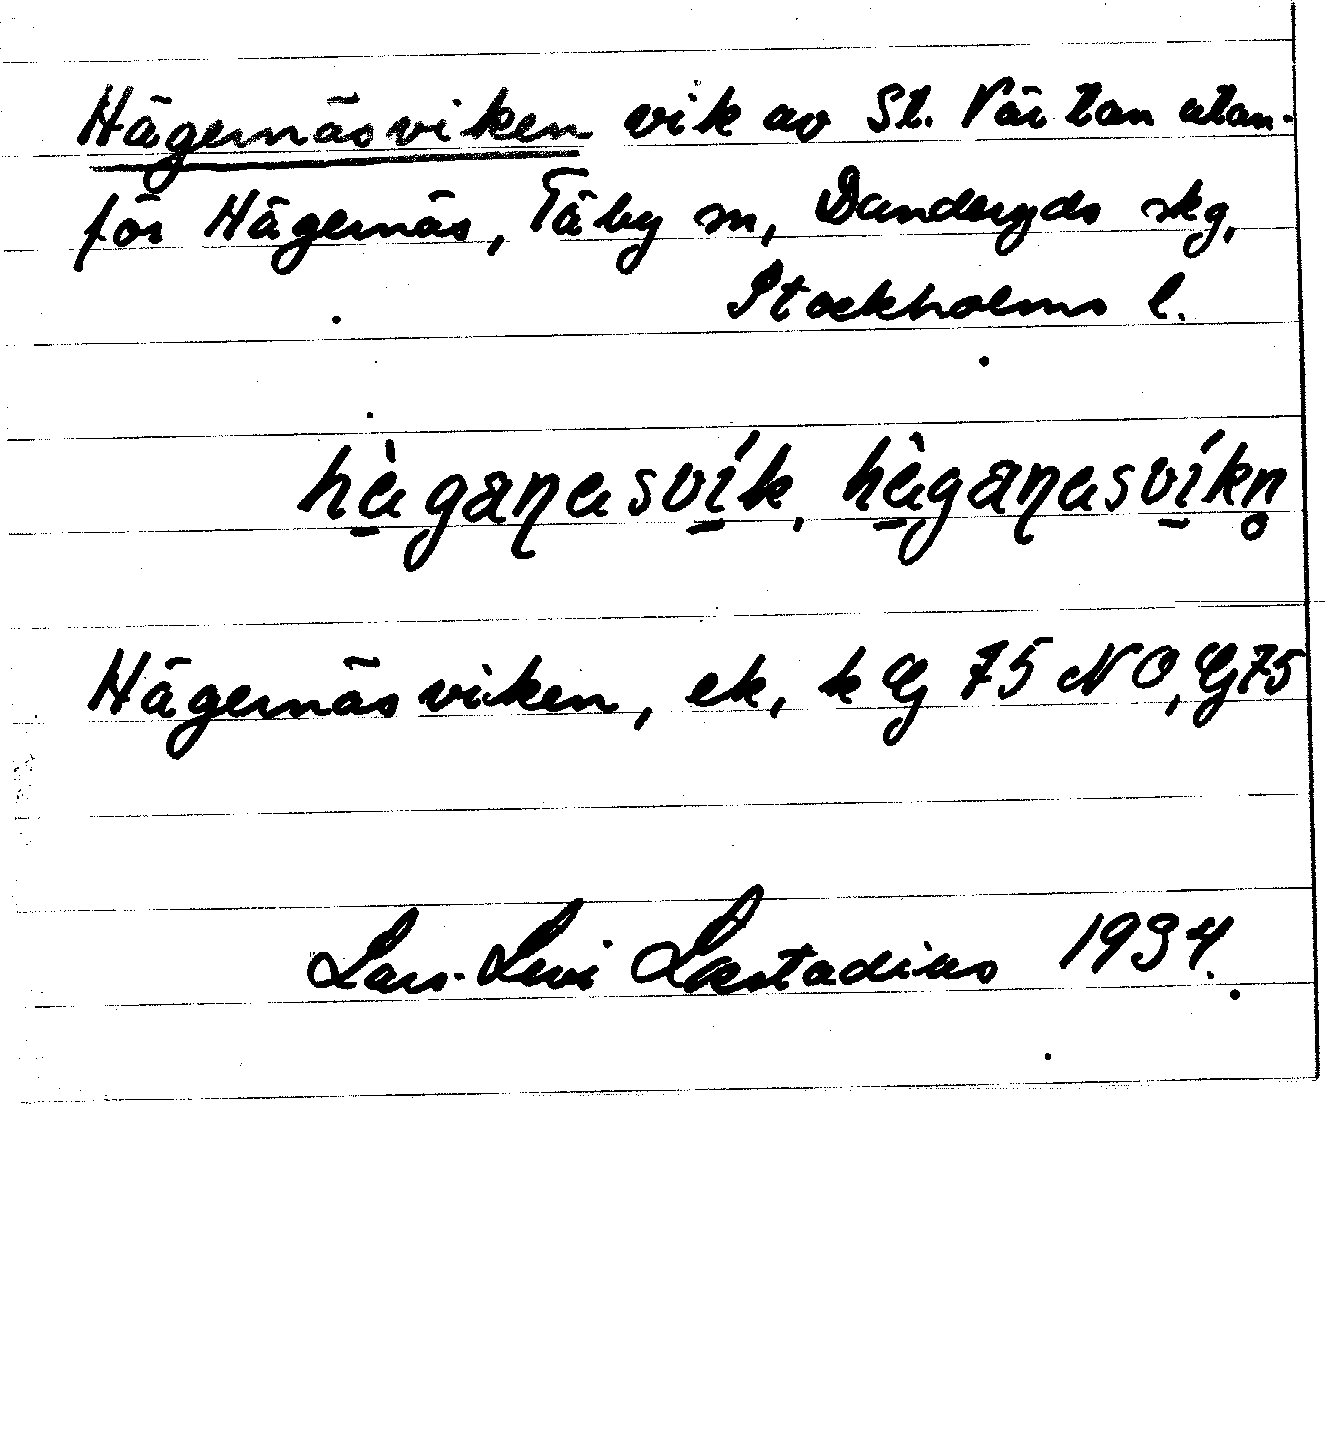 Hägernäsviken vik av St. Värtan utan-
för Hägernäs, Täby sn, Danderyds skg,
Stockholms l.
hàganasvík, hàganasvíkn̥
Hägernäsviken, ek, k G 75 NO, G 75
Lars-Levi Læstadius 1934.